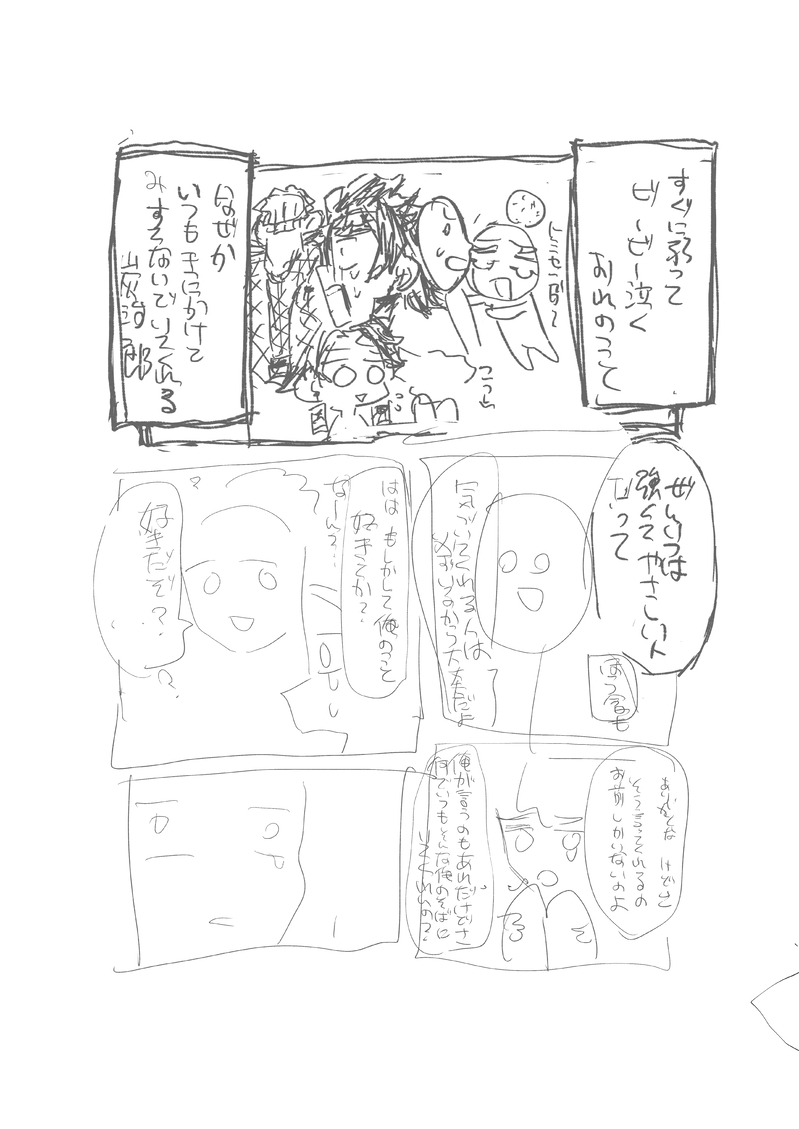 すぐに弱って
ビービー泣く
おれのこと
なぜか
いつも手にかけて
みすてないでいてくれる
炭治郎
こっち
ぜんいつは
強くて やさしい人
だって
気づいてくれる人は
ぜったいいるから大丈夫だよ
はは もしかして俺のこと
好きとか?
なーんて
好きだぞ?
ありがとな けどさ
そう言ってくれるの
お前しかいないのよ
俺が言うのもあれだけどさ
何でいつもそんな俺のそばに
いてくれんの?